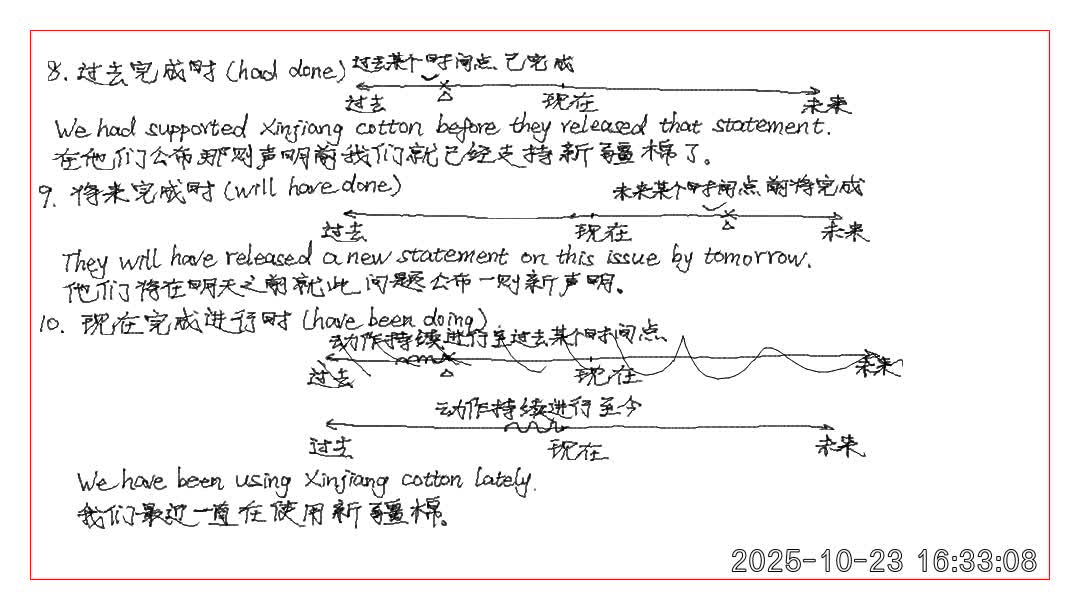 8. 过去完成时 (had done) 过去某个时间点、已完成
过去 现在 未来
We had supported Xinjiang cotton before they released that statement.
在他们公布那则声明前我们就已经支持新疆棉了。
9. 将来完成时 (will have done) 未来某个时间点前将完成
过去 现在 未来
They will have released a new statement on this issue by tomorrow.
他们将在明天之前就此问题公布一则新声明。
10. 现在完成进行时 (have been doing)
动作持续进行至过去某个时间点
过去 现在 未来
动作持续进行至今
过去 现在 未来
We have been using Xinjiang cotton lately.
我们最近一直在使用新疆棉。
2025-10-23 16:33:08